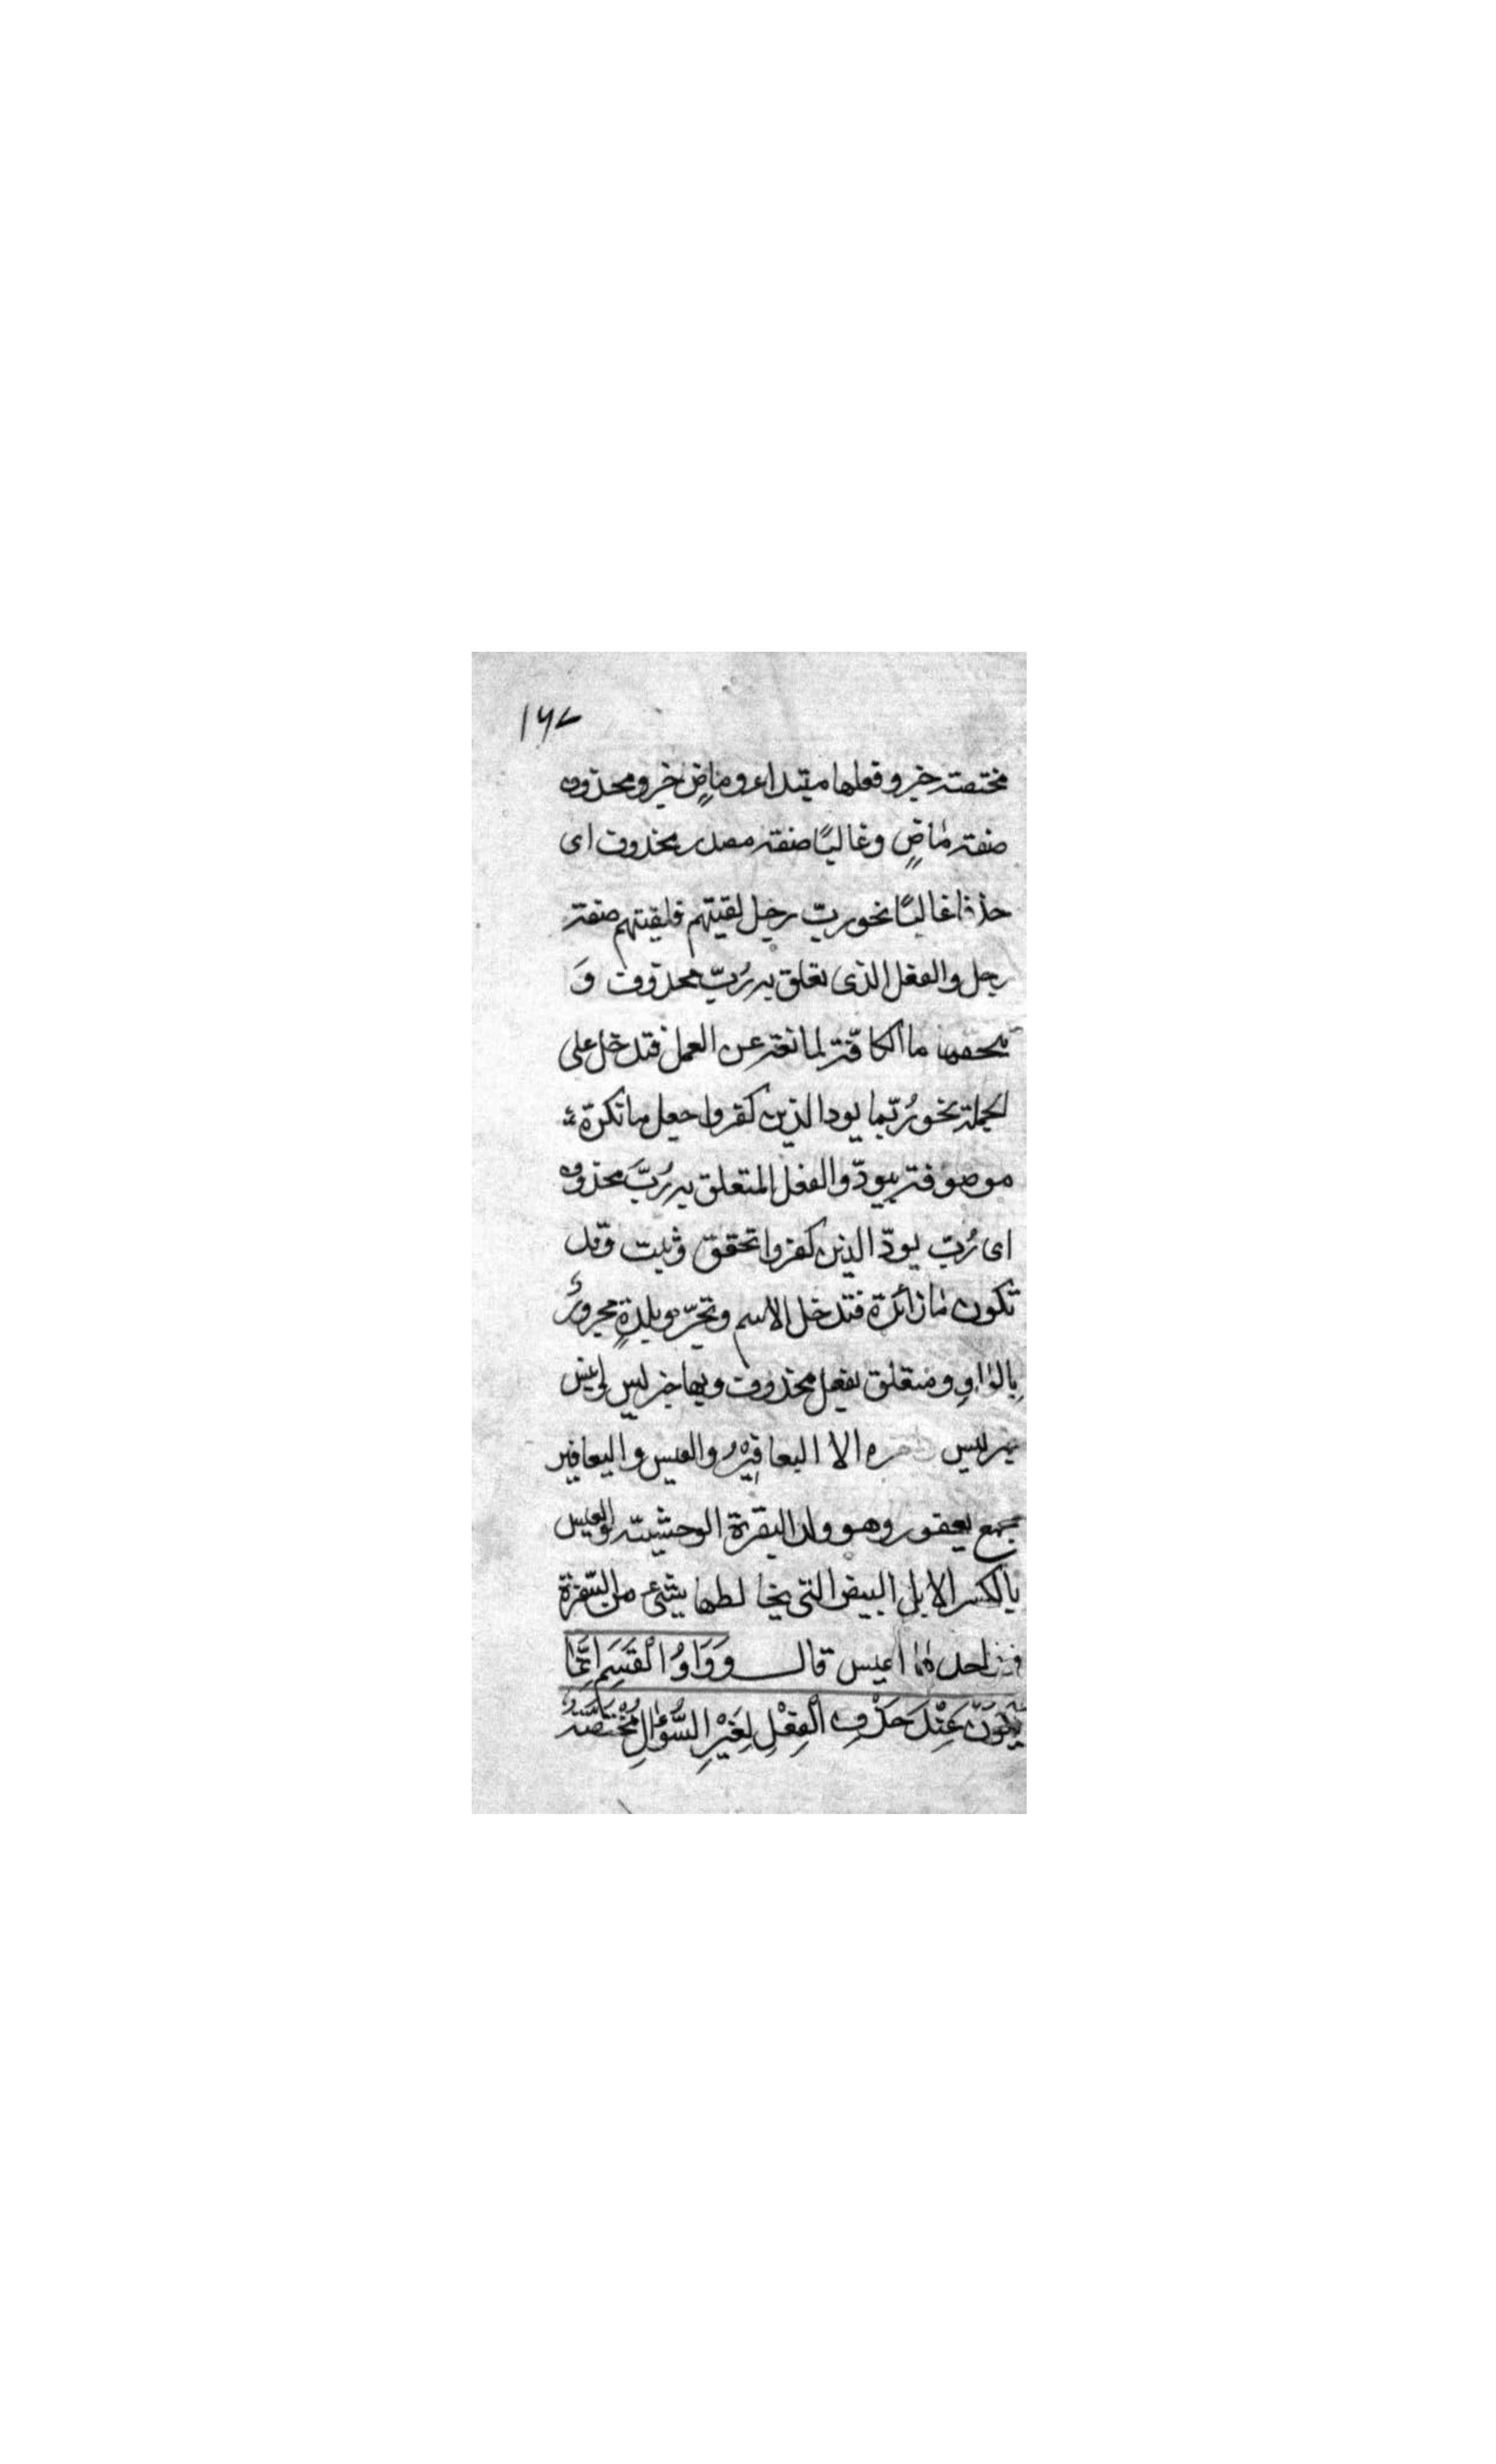 ۱۶۷
مختصة خبر وفعلها مبتداء وماض خبر ومحذوف
صفة ماضٍ وغالبًا صفة مصدر محذوف اى
حذفا غالبًا نحو ربّ رجل لقيتهم فلقيتهم صفة
رجل والفعل الذى تعلق به رُبّ محذوف وَ
تلحقها ما الكافّة لمانعة عن العمل فتدخل على
الجملة نحو رُبّما يود الذين كفروا جعل ما نكرة
موصوفة بيودّ والفعل المتعلق به رُبَّ محذوف
اى رُبّ يودّ الذين كفروا تحقق وثبت وقد
تكون ما زائدة فتدخل الاسم وتجرّ وبلدةٍ مجرورٌ
بالواوِ ومتعلق بفعل محذوف وبها خبر ليس
ليس الا اليعافيْرُ والعيس واليعافير
جمع يعفور وهو ولد البقرة الوحشية والعيس
بالكسر الابل البيض التى يخالطها شئ من الشقرة
واحدها اعيس قال وَوَاوُ الْقَسَمِ اِنَّمَا
يَكُوْنُ عِنْدَ حَذْفِ الْفِعْلِ لِغَيْرِ السُّؤَالِ مُخْتَصَّةٌ